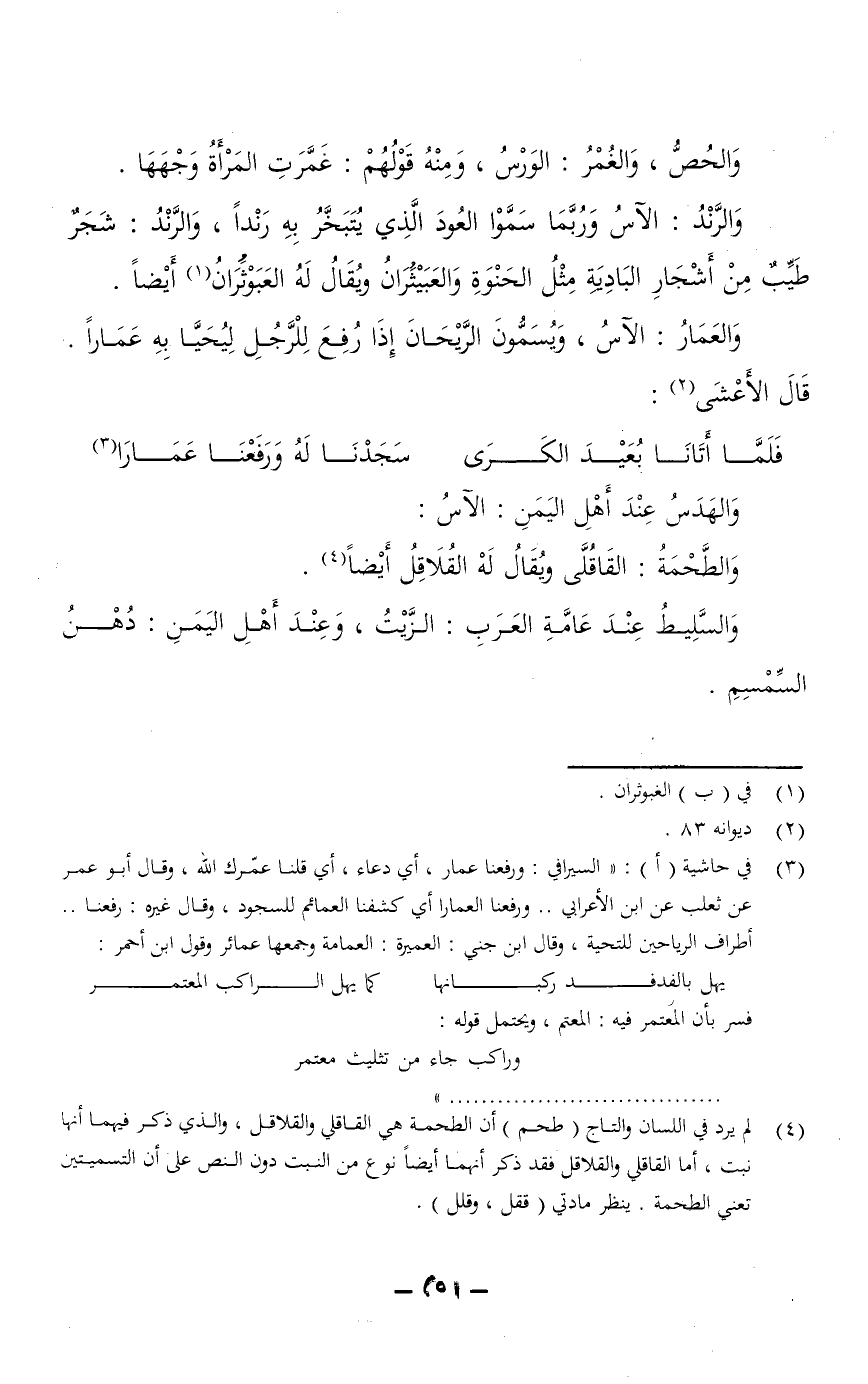 وَالحُصُّ ، وَالغُمْرُ : الوَرْسُ ، وَمِنْهُ قَوْلُهُمْ : غَمَّرَتِ المَرْأَةُ وَجْهَهَا .
وَالرَّنْدُ : الآسُ وَرُبَّمَا سَمَّوْا العُودَ الَّذِي يُتَبَخَّرُ بِهِ رَنْداً ، وَالرَّنْدُ : شَجَرٌ
طَيِّبٌ مِنْ أَشْجَارِ البَادِيَةِ مِثْلُ الحَنْوَةِ وَالعَبَيْثُرَانُ ويُقَالُ لَهُ العَبَوْثُرَانُ(١) أَيْضاً .
وَالعَمَارُ : الآسُ ، وَيُسَمُّونَ الرَّيْحَانَ إِذَا رُفِعَ لِلْرَّجُلِ لِيُحَيَّا بِهِ عَمَاراً .
قَالَ الأَعْشَى(٢) :
فَلَمَّا أَتَانَا بُعَيْدَ الكَرَى سَجَدْنَا لَهُ وَرَفَعْنَا عَمَارَا(٣)
وَالهَدَسُ عِنْدَ أَهْلِ اليَمَنِ : الآسُ :
وَالطَّحْمَةُ : القَاقُلَّى ويُقَالُ لَهْ القُلَاقِلُ أَيْضاً(٤) .
وَالسَّلِيطُ عِنْدَ عَامَّةِ العَرَبِ : الزَّيْتُ ، وَعِنْدَ أَهْلِ اليَمَنِ : دُهْنُ
السِّمْسِمِ .
(١) في ( ب ) الغبوثران .
(٢) ديوانه ٨٣ .
(٣) في حاشية ( أ ) : « السيرافي : ورفعنا عمار ، أي دعاء ، أي قلنا عمّرك الله ، وقال أبو عمر
عن ثعلب عن ابن الأعرابي .. ورفعنا العمارا أي كشفنا العمائم للسجود ، وقال غيره : رفعنا ..
أطراف الرياحين للتحية ، وقال ابن جني : العميرة : العمامة وجمعها عمائر وقول ابن أحمر :
يهل بالفدفد ركبانها كما يهل الراكب المعتمر
فسر بأن المُعتمر فيه : المعتم ، ويحتمل قوله :
وراكب جاء من تثليث معتمر
.................................. »
(٤) لم يرد في اللسان والتاج ( طحم ) أن الطحمة هي القاقلي والقلاقل ، والذي ذكر فيهما أنها
نبت ، أما القاقلي والقلاقل فقد ذكر أنهما أيضاً نوع من النبت دون النص على أن التسميتين
تعني الطحمة . ينظر مادتي ( ققل ، وقلل ) .
– ٢٥١ –